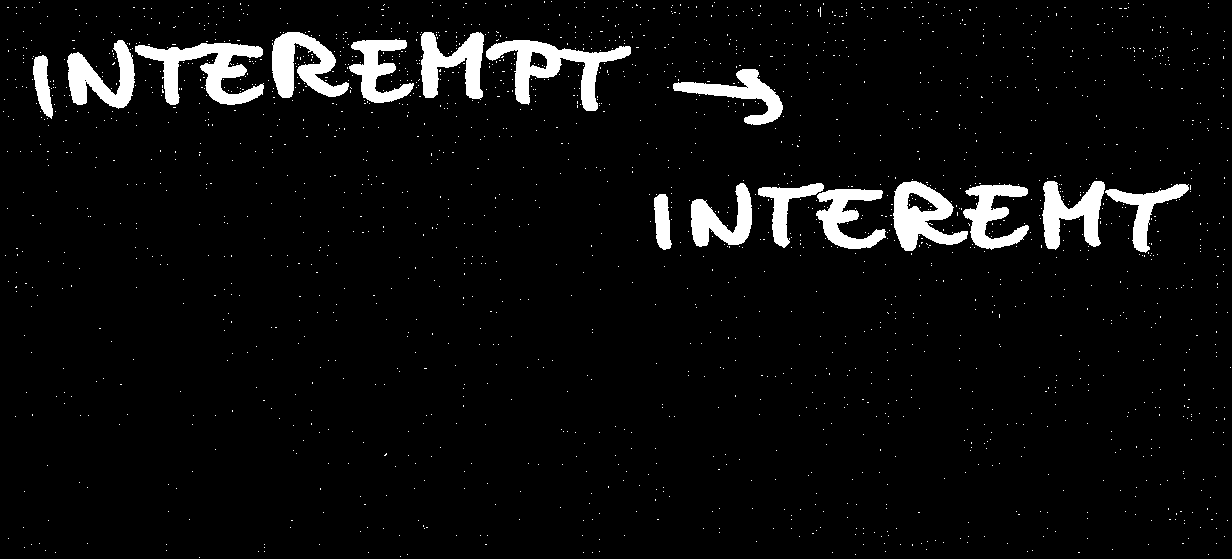 INTEREMPT →
INTEREMT